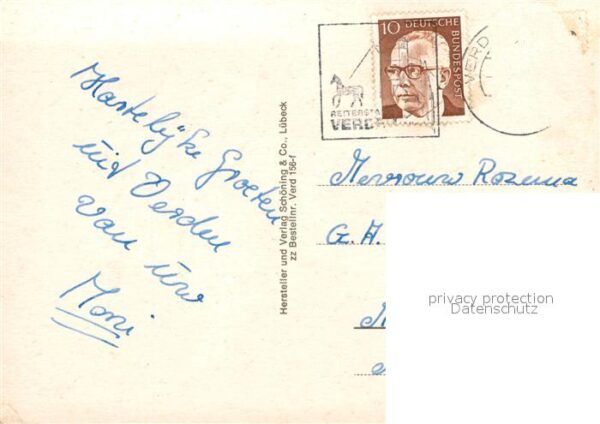 Hartelijke Groeten
uit Verden
van uw
Moni
Hersteller und Verlag Schöning & Co., Lübeck
zz Bestellnr. Verd 156-f
10 DEUTSCHE
BUNDESPOST
REITERST
VERDEN
VERD
Mevrouw Rozema
G.H.
privacy protection
Datenschutz